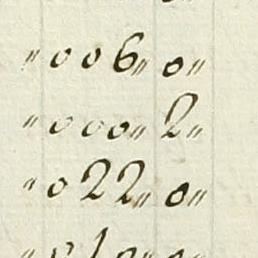 " 006 " 0 "
" 000 " 2 "
" 022 " 0 "